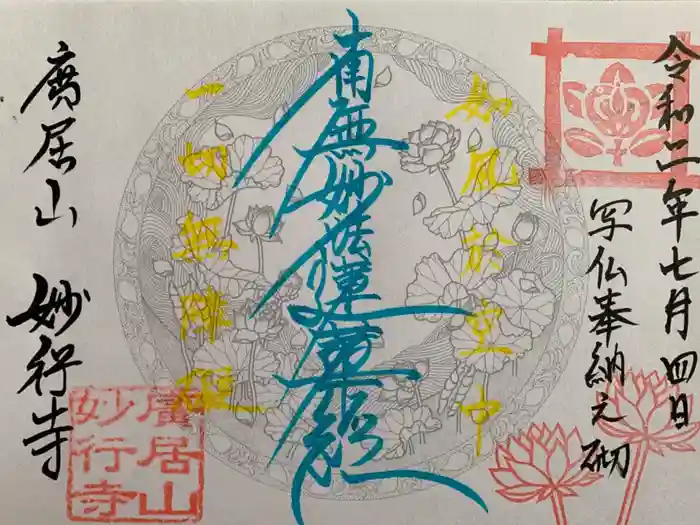 令和二年七月四日
写仏奉納之砌
如風於空中
南無妙法蓮華経
一切無障碍
廣居山 妙行寺
廣居山
妙行寺